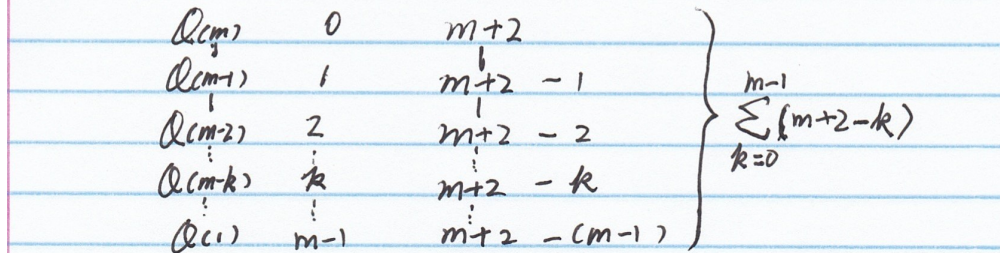 Q(m) 0 m+2
Q(m-1) 1 m+2 -1
Q(m-2) 2 m+2 -2
Q(m-k) k m+2 -k
Q(1) m-1 m+2 -(m-1)
m-1
∑(m+2-k)
k=0